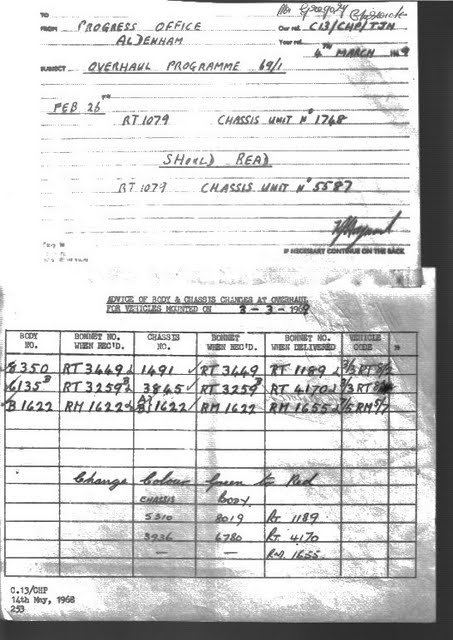 TO Mr Gregory
FROM PROGRESS OFFICE Our ref. C13/CHP/TJH
ALDENHAM Your ref.
4TH MARCH 1969
SUBJECT OVERHAUL PROGRAMME 69/1
FEB 26
RT 1079 CHASSIS UNIT No 1748
SHOULD READ
RT 1079 CHASSIS UNIT No 5587
Copy to
IF NECESSARY CONTINUE ON THE BACK
ADVICE OF BODY & CHASSIS CHANGES AT OVERHAUL
FOR VEHICLES MOUNTED ON 3-3-1969
BODY NO. BONNET NO. WHEN REC'D. CHASSIS NO. BONNET WHEN REC'D. BONNET NO. WHEN DELIVERED VEHICLE CODE
8350 RT 3449 1491 RT 3449 RT 1189
6135 RT 3259 3845 RT 3259 RT 4170
B 1622 RM 1622 1622 RM 1622 RM 1655
Change Colour Green to Red
CHASSIS BODY
5310 8019 RT 1189
3936 6780 RT 4170
— — RM 1655
C.13/CHP
14th May, 1968
253